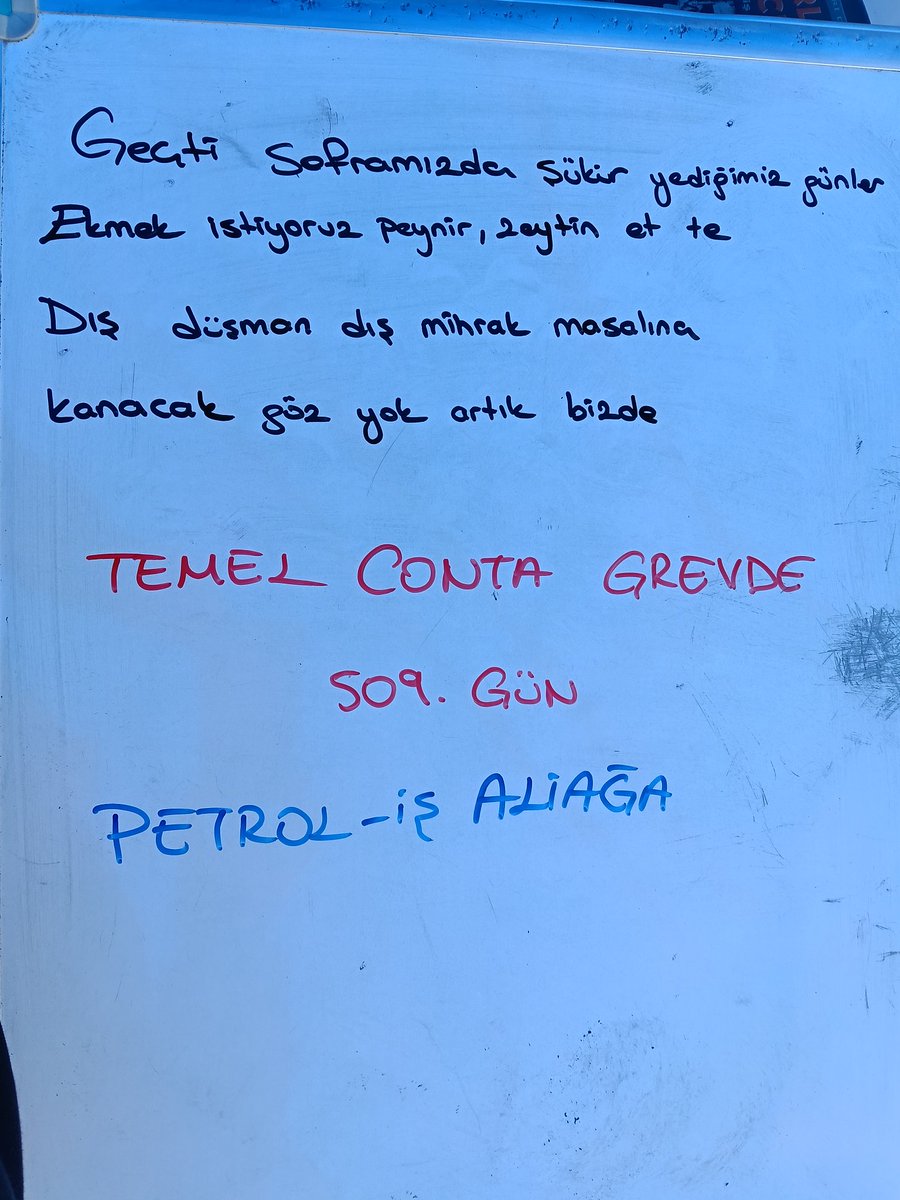 Geçti Soframızda şükür yediğimiz günler
Ekmek istiyoruz peynir, zeytin et te
Dış düşman dış mihrak masalına
kanacak göz yok artık bizde
TEMEL CONTA GREVDE
509. GÜN
PETROL-İŞ ALİAĞA